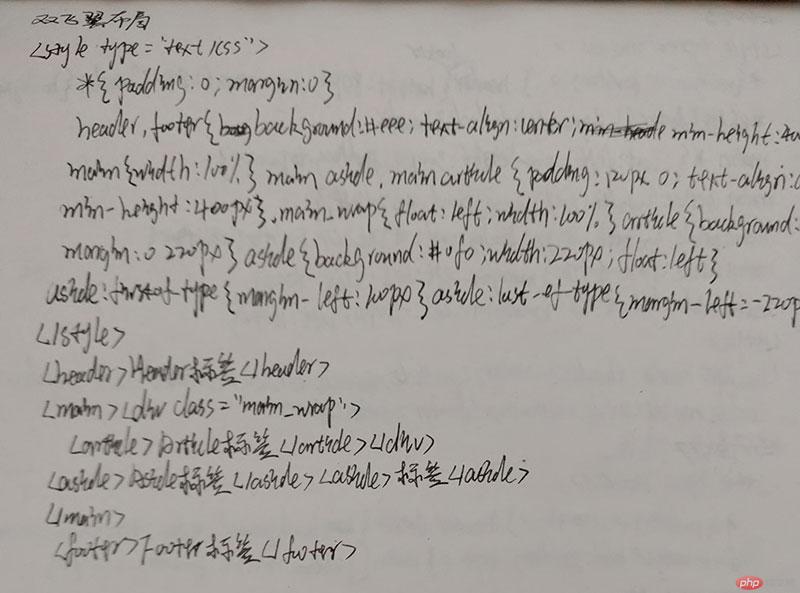 双飞翼布局
<style type="text/css">
*{padding:0; margin:0}
header, footer{background:#eee; text-align:center; min-height:
main{width:100%} main aside, main article {padding:120px 0; text-align:
min-height:400px} .main_wrap{float:left; width:100%} article{background:
margin:0 220px} aside{background:#0f0; width:220px; float:left}
aside:first-of-type{margin-left:100px} aside:last-of-type{margin-left=-220p
</style>
<header>Header标签</header>
<main><div class="main_wrap">
<article>Article标签</article></div>
<aside>Aside标签</aside><aside>标签</aside>
</main>
<footer>Footer标签</footer>
php